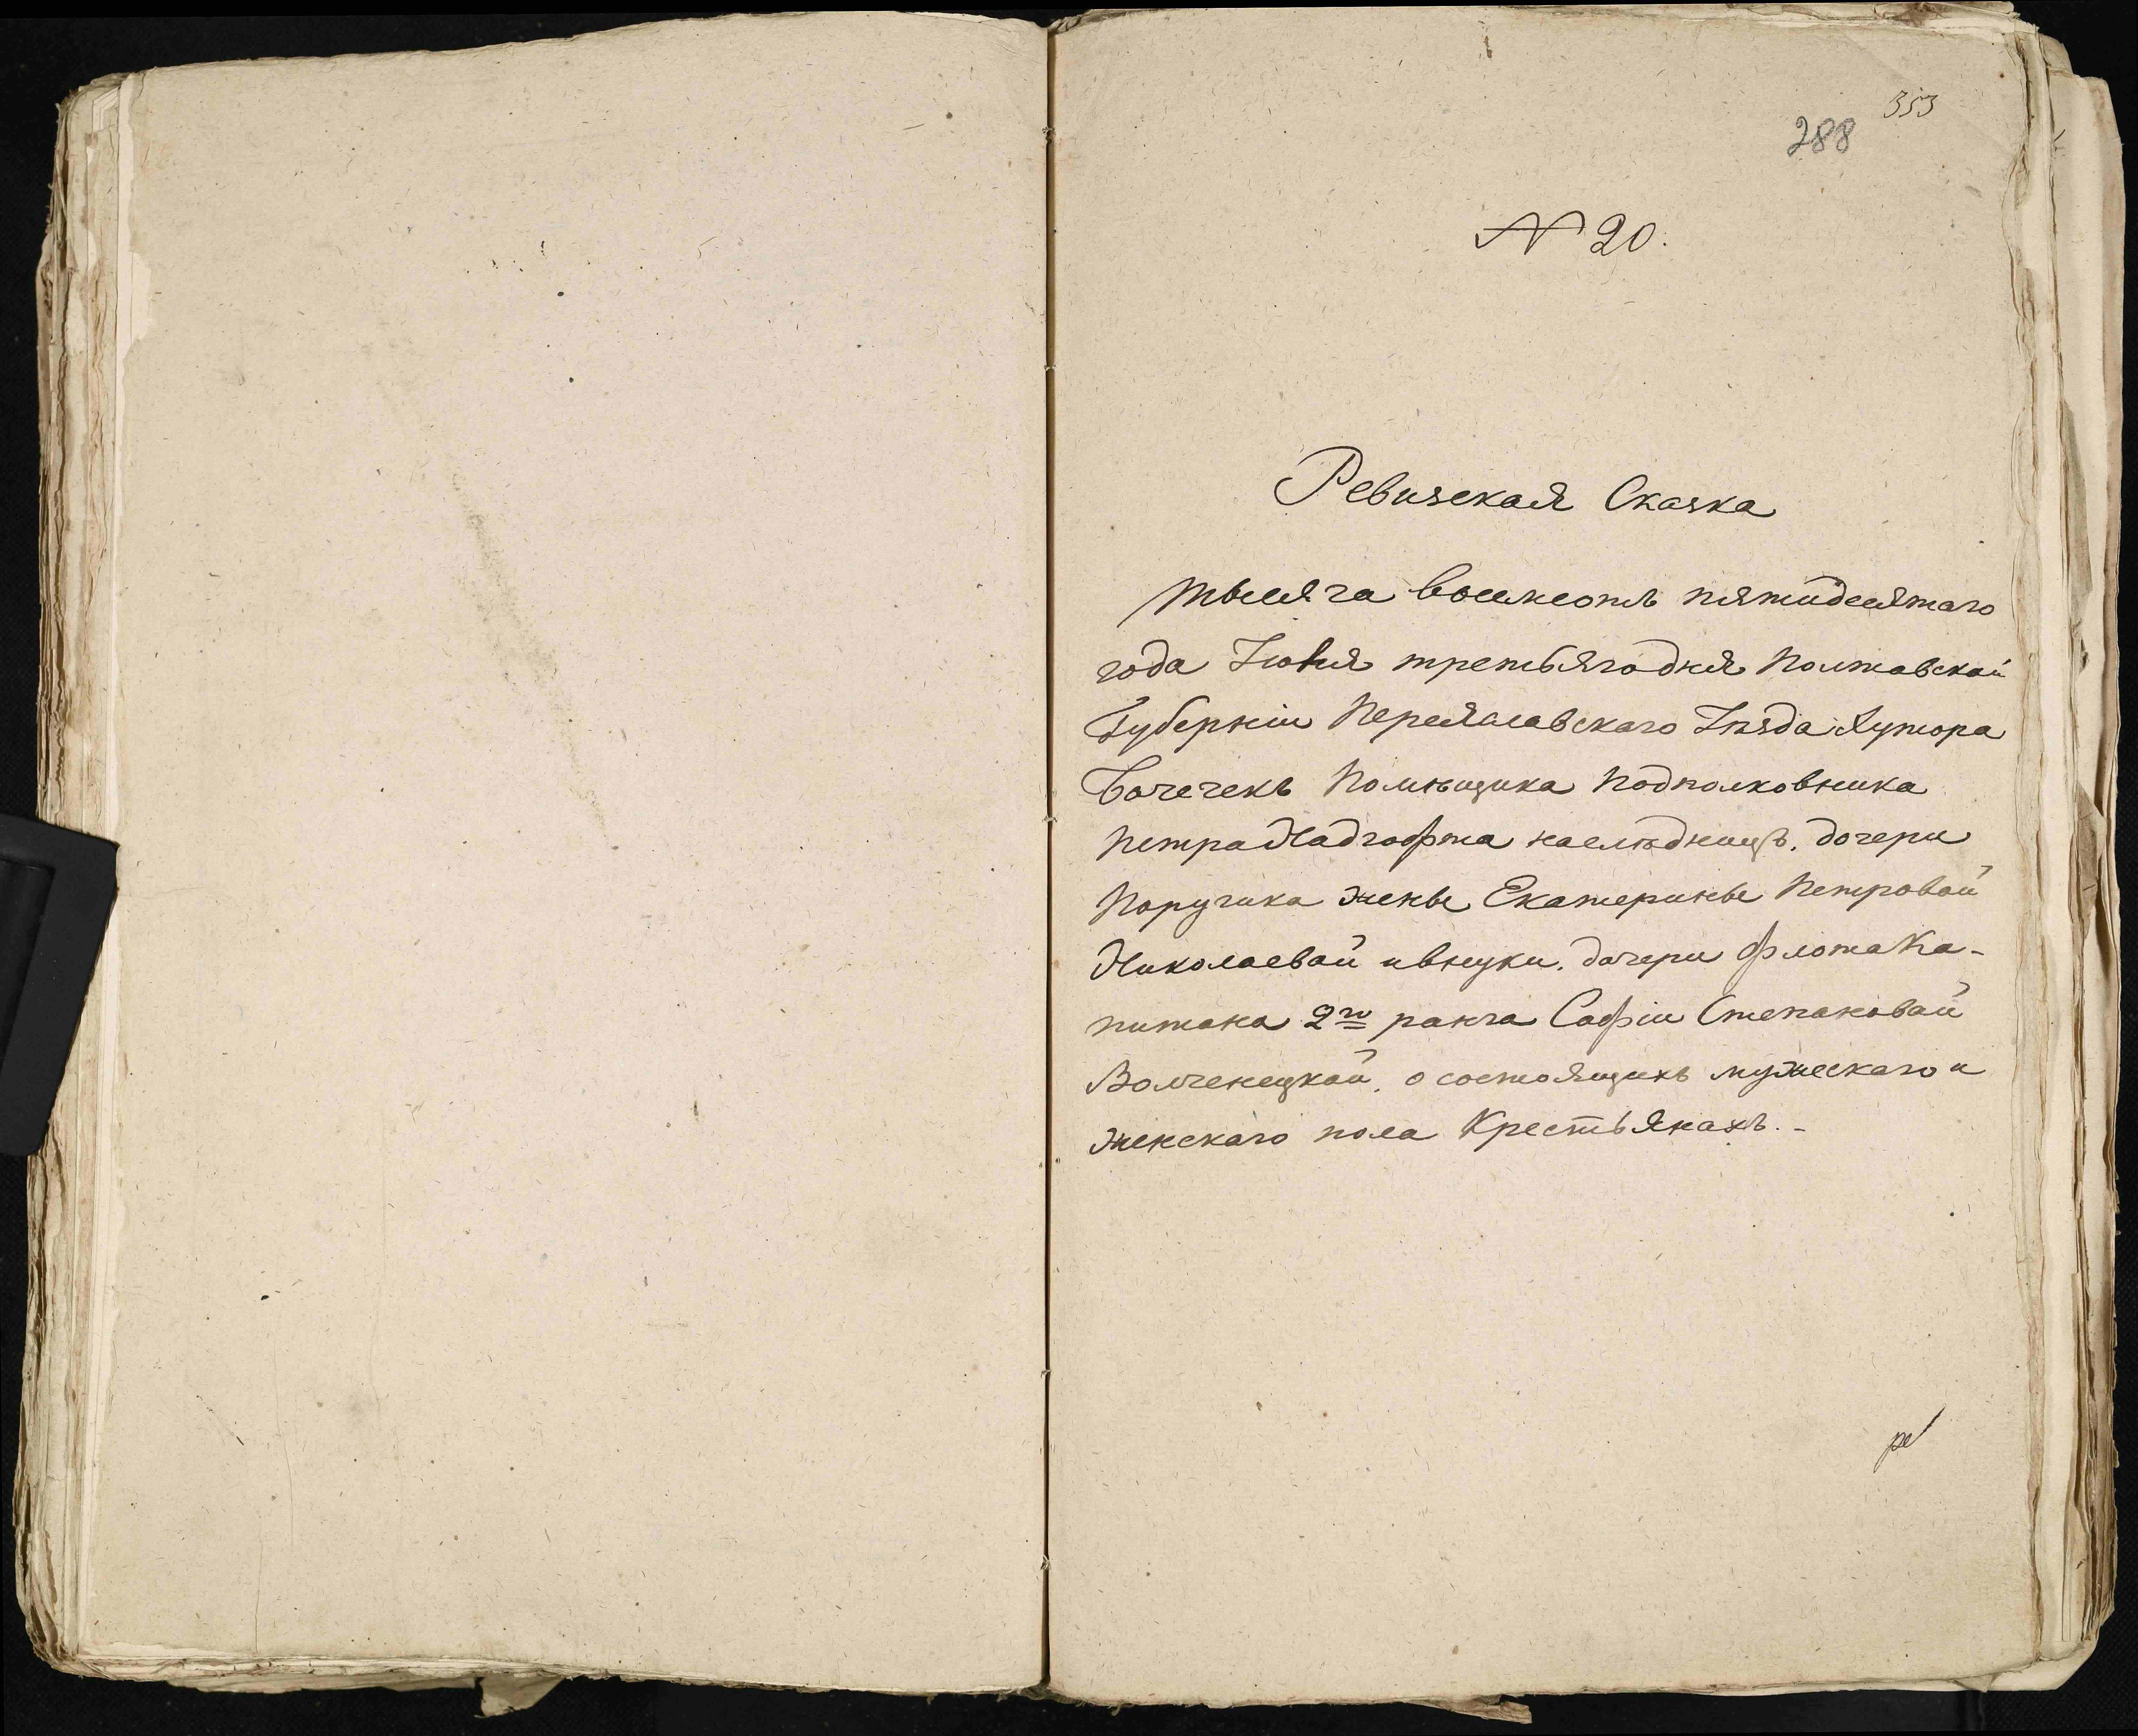 353
288
№ 20.
Ревизская Сказка
Тысяча восемсотъ пятидесятаго
года Іюня третьягодня Полтавской
Губерніи Переяславскаго Уѣзда Хутора
Бочечекъ Помѣщика Подполковника
Петра Надгофта наслѣдницъ. дочери
Поручика жены Екатерины Петровой
Николаевой ивнуки. дочери флота Ка-
питана 2го ранга Софіи Степановой
Волченецкой. о состоящихъ мужескаго и
женскаго пола Крестьянахъ.-